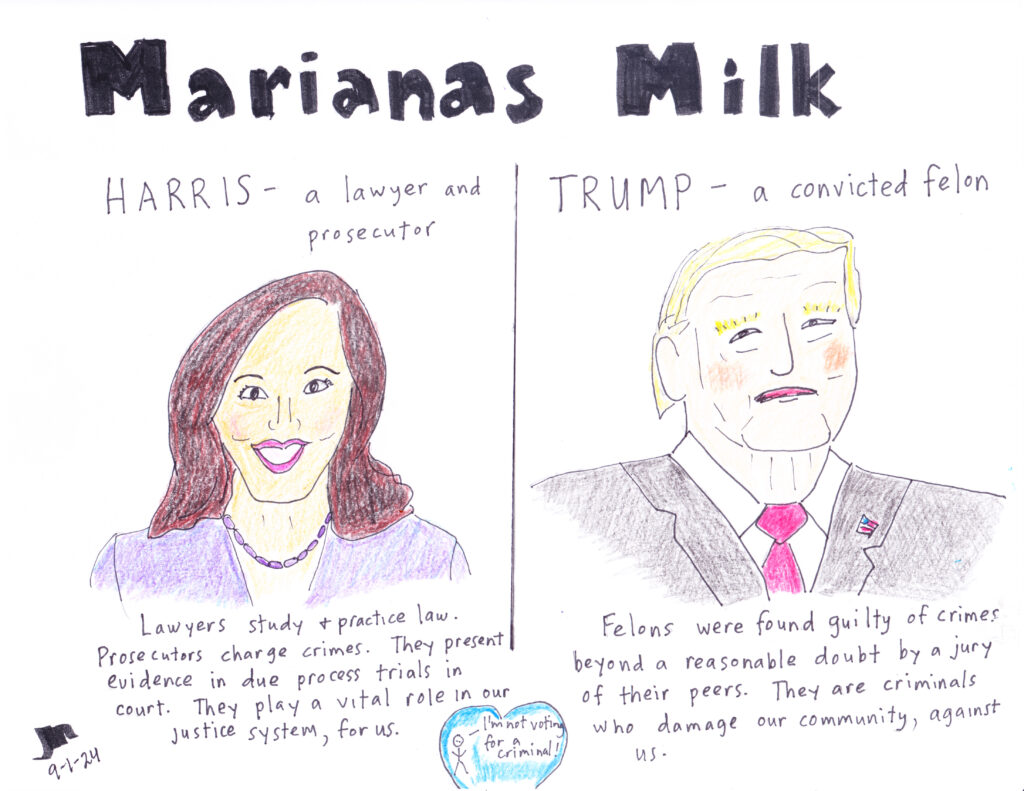 Marianas Milk
HARRIS - a lawyer and
prosecutor
Lawyers study + practice law.
Prosecutors charge crimes. They present
evidence in due process trials in
court. They play a vital role in our
justice system, for us.
TRUMP - a convicted felon
Felons were found guilty of crimes
beyond a reasonable doubt by a jury
of their peers. They are criminals
who damage our community, against
us.
I'm not voting
for a
criminal!
9-1-24